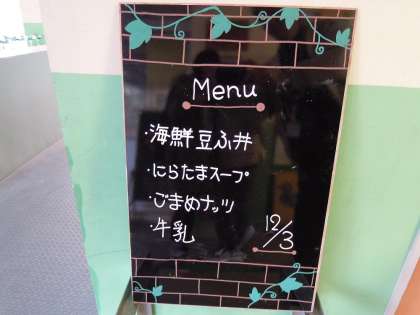 Menu
・海鮮豆ふ丼
・にらたまスープ
・ごまめナッツ
・牛乳
12/3